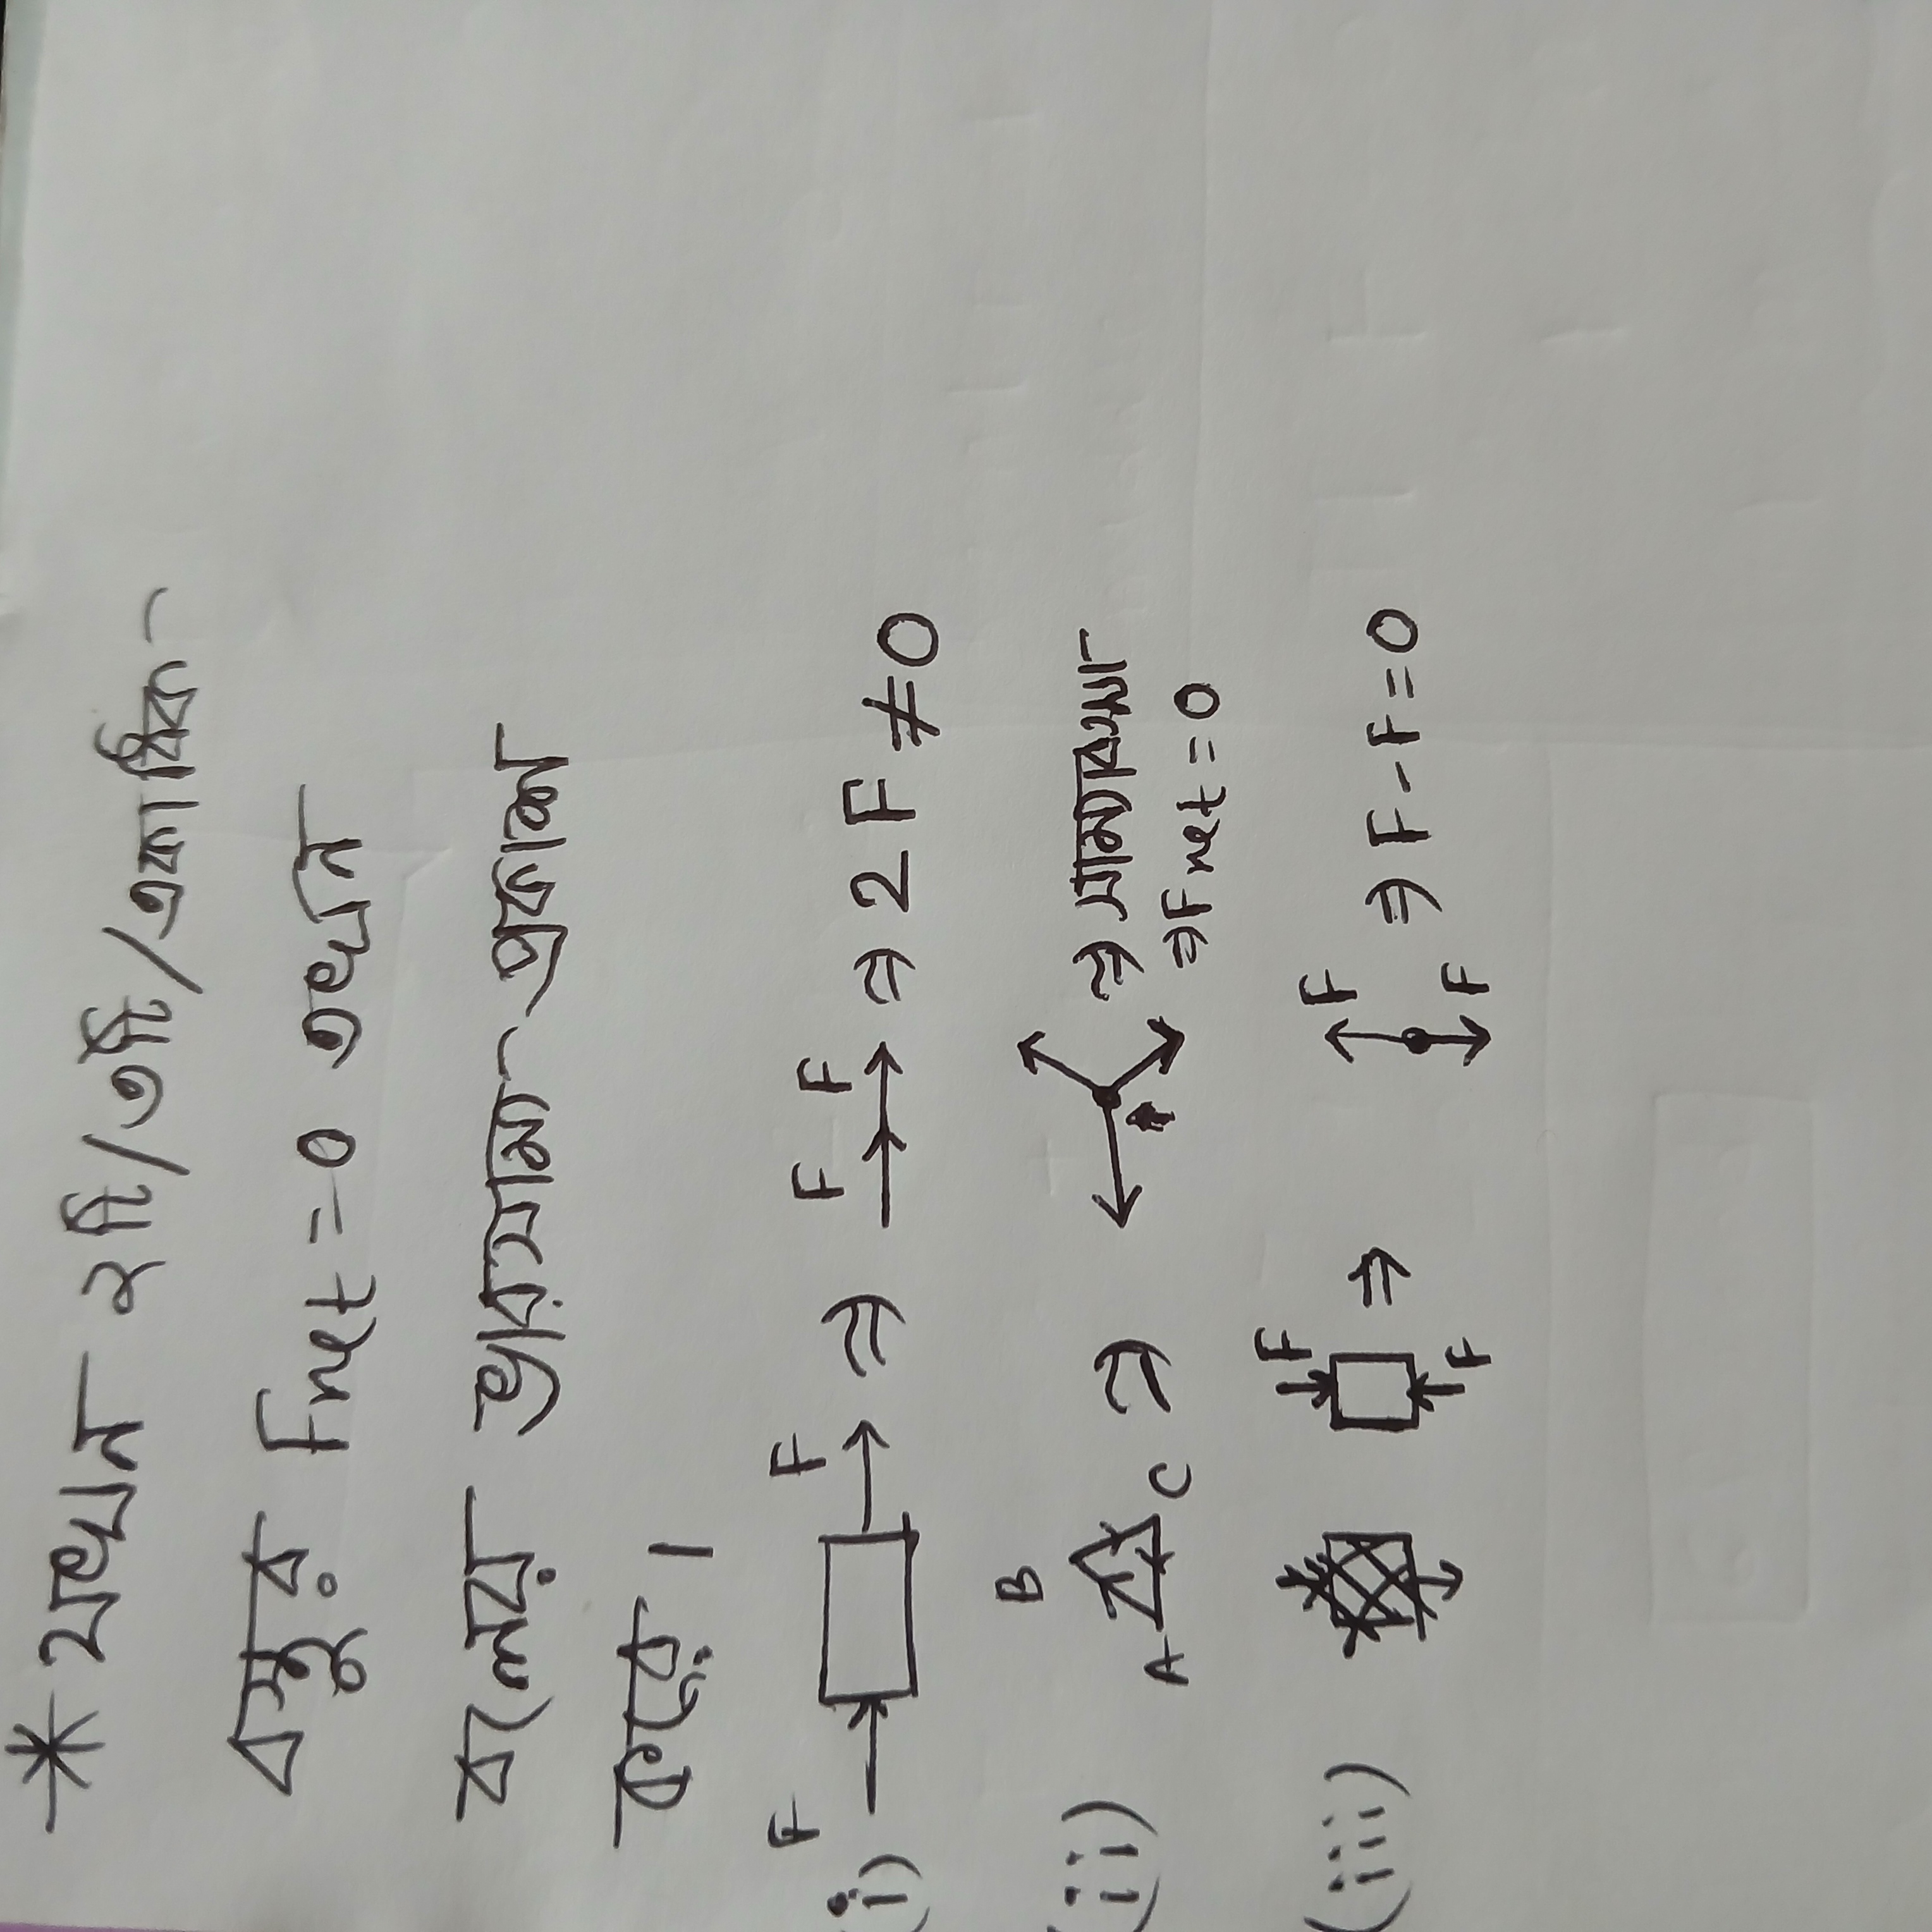 * যখন ২টি/৩টি/একাধিক
বস্তুর Fnet = 0 তখন
বলের ভারসাম্য প্রকাশ
করে।
(i) F F ⇒ F F ⇒ 2F ≠ 0
(ii) A B C ⇒ ⇒ সাম্যাবস্থা
⇒ Fnet = 0
(iii) F F ⇒ F F ⇒ F - F = 0